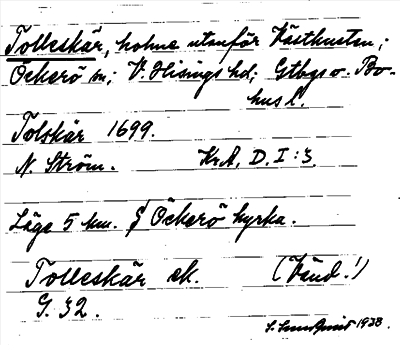 Tolleskär, holme utanför Västkusten;
Öckerö sn; V. Hisings hd; Gtbgs o. Bo-
hus l.
Tolskär 1699.
N. Ström. KrA, D. I : 3.
Läge 5 km. Öckerö kyrka.
Tolleskär ek. (Vänd!)
G. 32.
1938